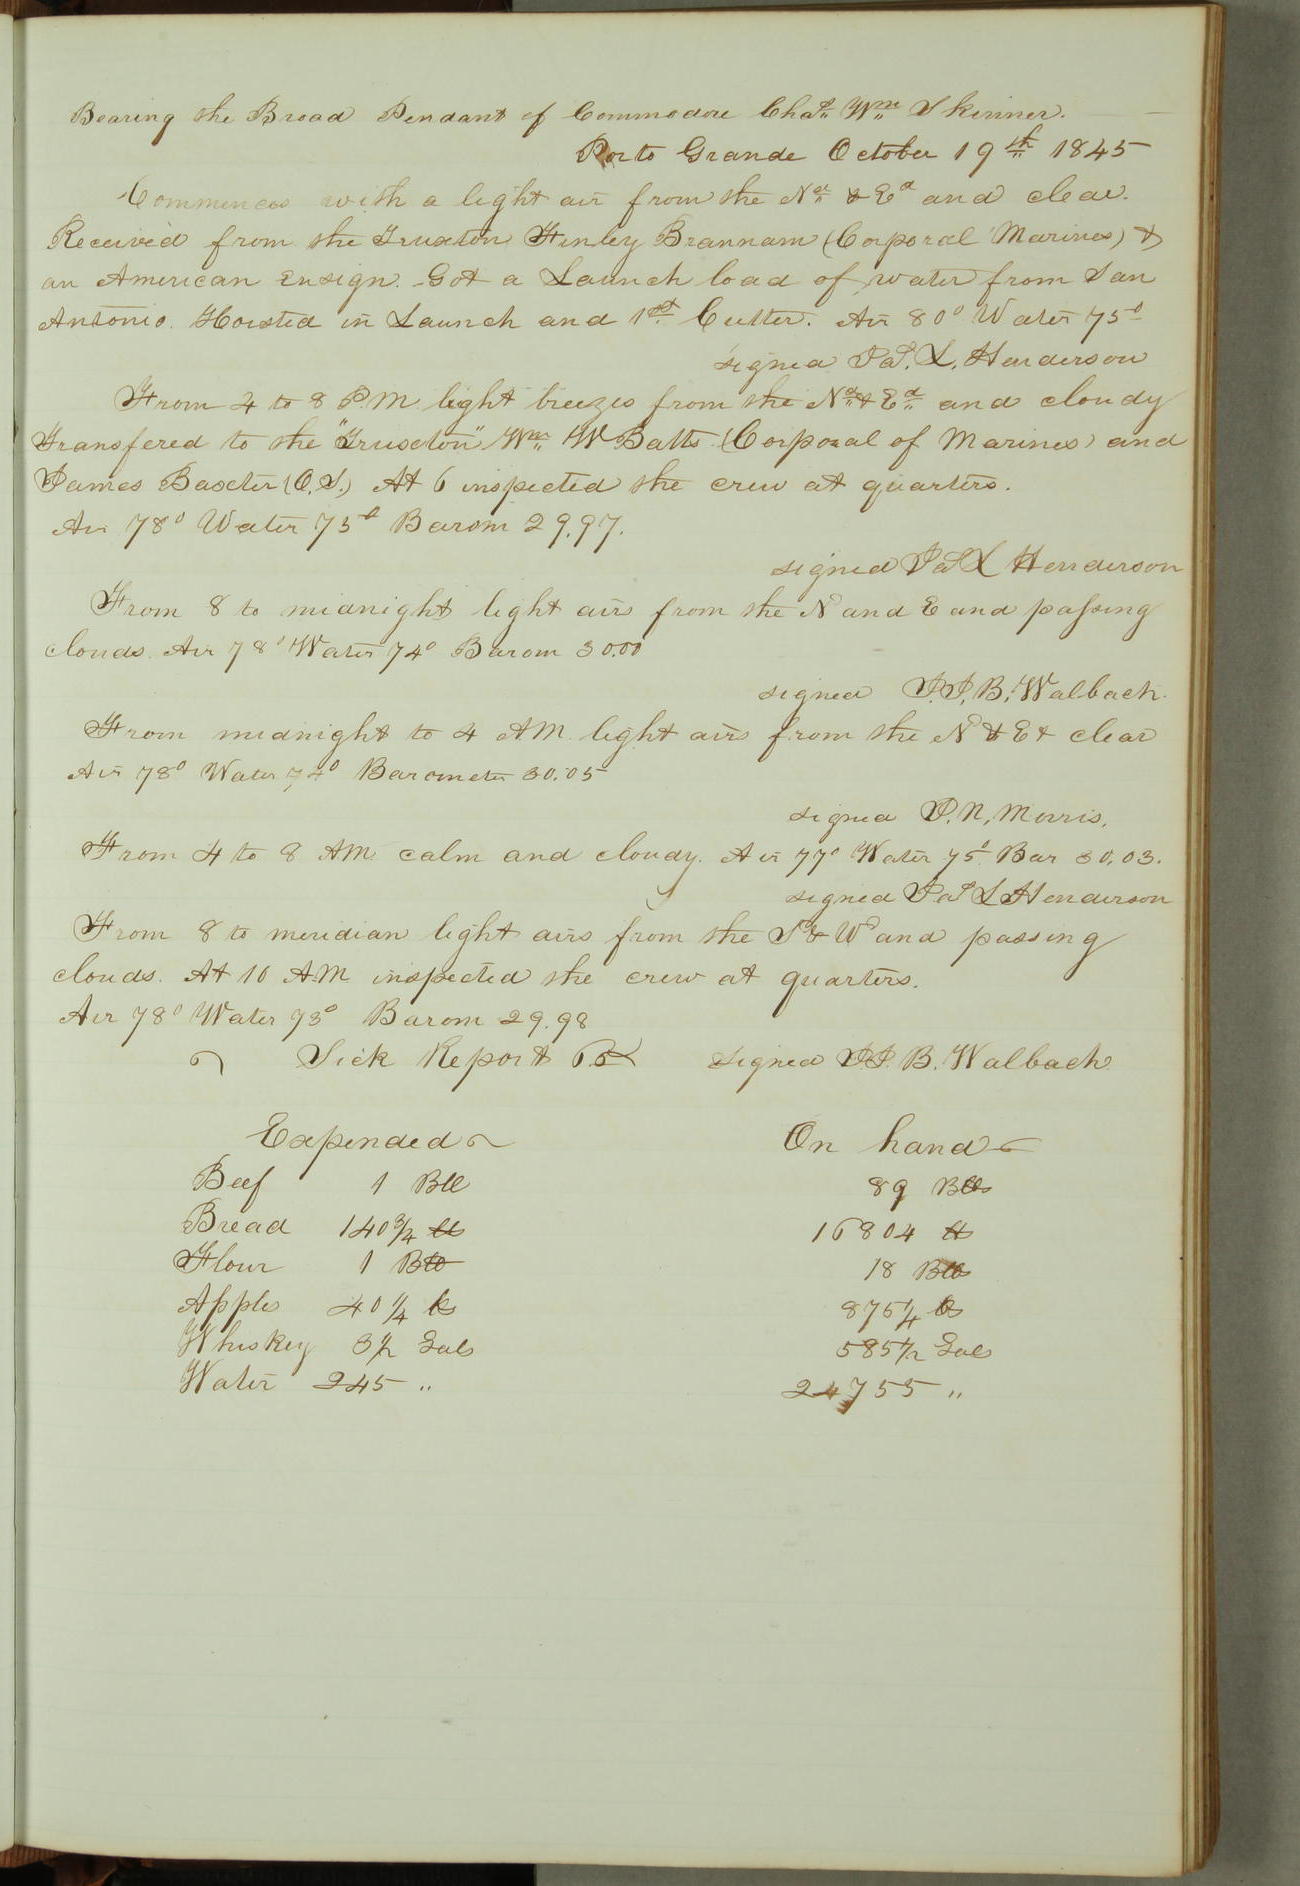 Bearing the Broad Pendant of Commodore Chas Wm Skinner.
Porto Grande October 19th 1845
Commences with a light air from the Nd & Ed and clear.
Received from the Truxton Finley Brannam (Corporal Marines) &
an American Ensign. Got a Launch load of water from San
Antonio. Hoisted in Launch and 1st Cutter. Air 80° Water 75°
signed Jas. L. Henderson
From 4 to 8 P.M. light breezes from the Nd & Ed and cloudy
Transfered to the "Truxton" Wm W Batts (Corporal of Marines) and
James Baxter (O.S.) At 6 inspected the crew at quarters.
Air 78° Water 75° Barom 29.97.
signed Jas L Henderson
From 8 to midnight light airs from the N and E and passing
clouds. Air 78° Water 74° Barom 30.00
signed J.J.B. Walbach.
From midnight to 4 AM light airs from the N & E & clear
Air 78° Water 74° Barometer 30.05
signed J.N. Morris.
From 4 to 8 AM calm and cloudy. Air 77° Water 75° Bar 30.03.
signed Jas L Henderson
From 8 to meridian light airs from the S & W and passing
clouds. At 10 A.M. inspected the crew at quarters.
Air 78° Water 73° Barom 29.98
Sick Report signed J.J.B. Walbach
Expended On hand
Beef 1 Bll 89 Blls
Bread 140 3/4 lbs 16804 lbs
Flour 1 Bll 18 Blls
Apples 40 1/4 lbs 875 1/4 lbs
Whiskey 3 1/2 Gals 585 1/2 Gals
Water 245 " 24755 "